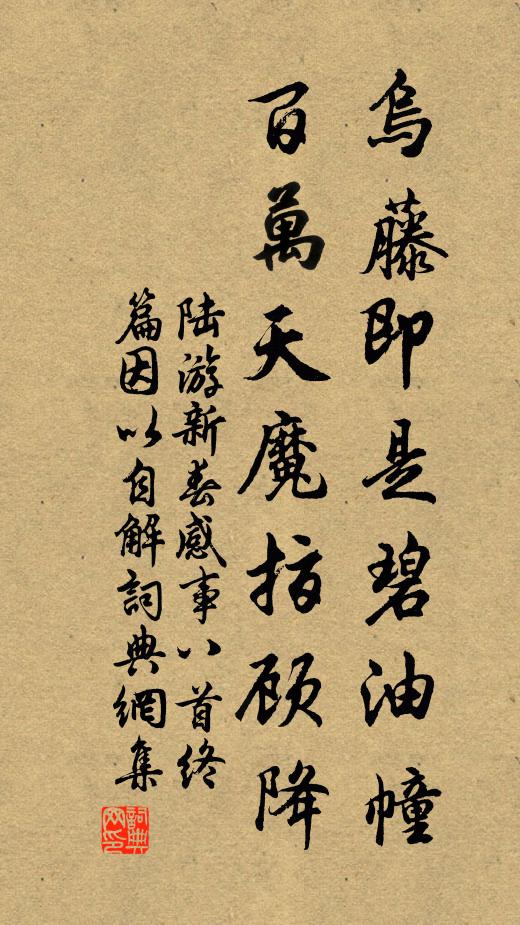 烏藤即是碧油幢
百萬天魔指顾降
陆游新春感事八首终
篇因以自解詞典網集
詞典
网印